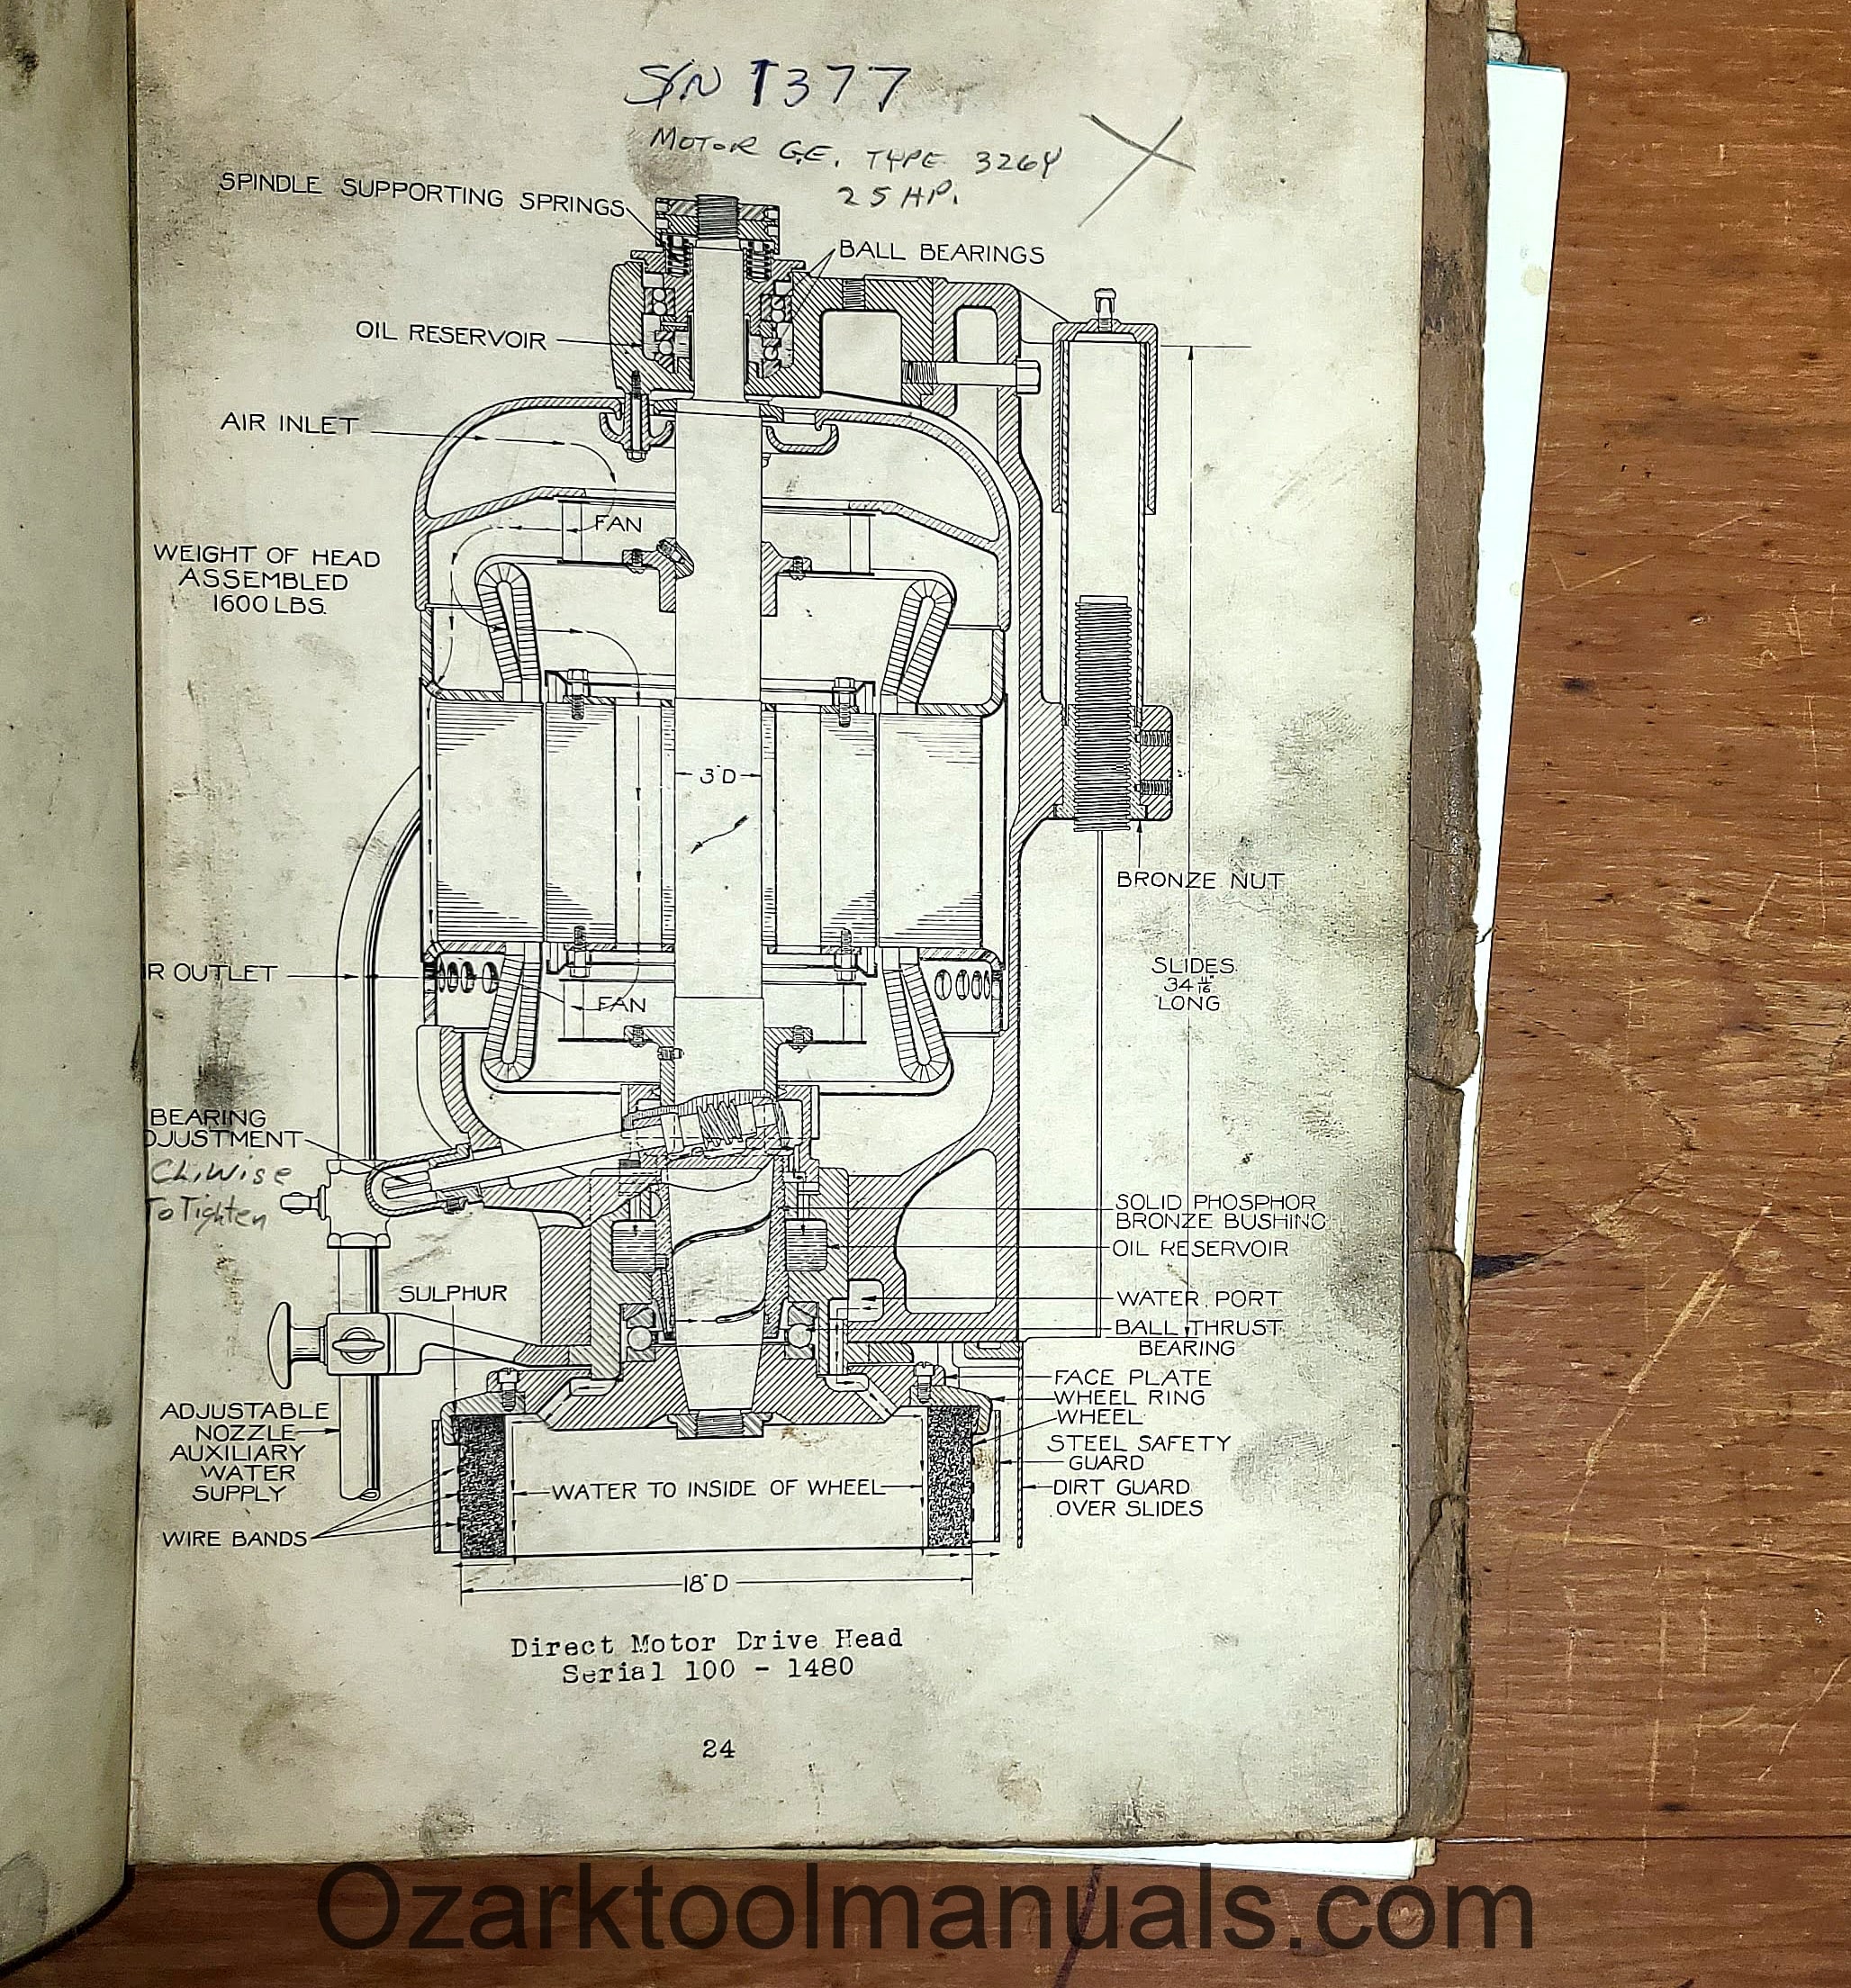 S/N 1377
MOTOR G.E. TYPE 326Y
25 HP.
SPINDLE SUPPORTING SPRINGS
BALL BEARINGS
OIL RESERVOIR
AIR INLET
FAN
WEIGHT OF HEAD
ASSEMBLED
1600 LBS.
3"D
BRONZE NUT
SLIDES
34 11/16"
LONG
R OUTLET
FAN
BEARING
DJUSTMENT
CL.WISE
To Tighten
SOLID PHOSPHOR
BRONZE BUSHING
OIL RESERVOIR
SULPHUR
WATER PORT
BALL THRUST
BEARING
FACE PLATE
WHEEL RING
WHEEL
ADJUSTABLE
NOZZLE
AUXILIARY
WATER
SUPPLY
STEEL SAFETY
GUARD
WATER TO INSIDE OF WHEEL
DIRT GUARD
OVER SLIDES
WIRE BANDS
18"D
Direct Motor Drive Head
Serial 100 - 1480
24
Ozarktoolmanuals.com